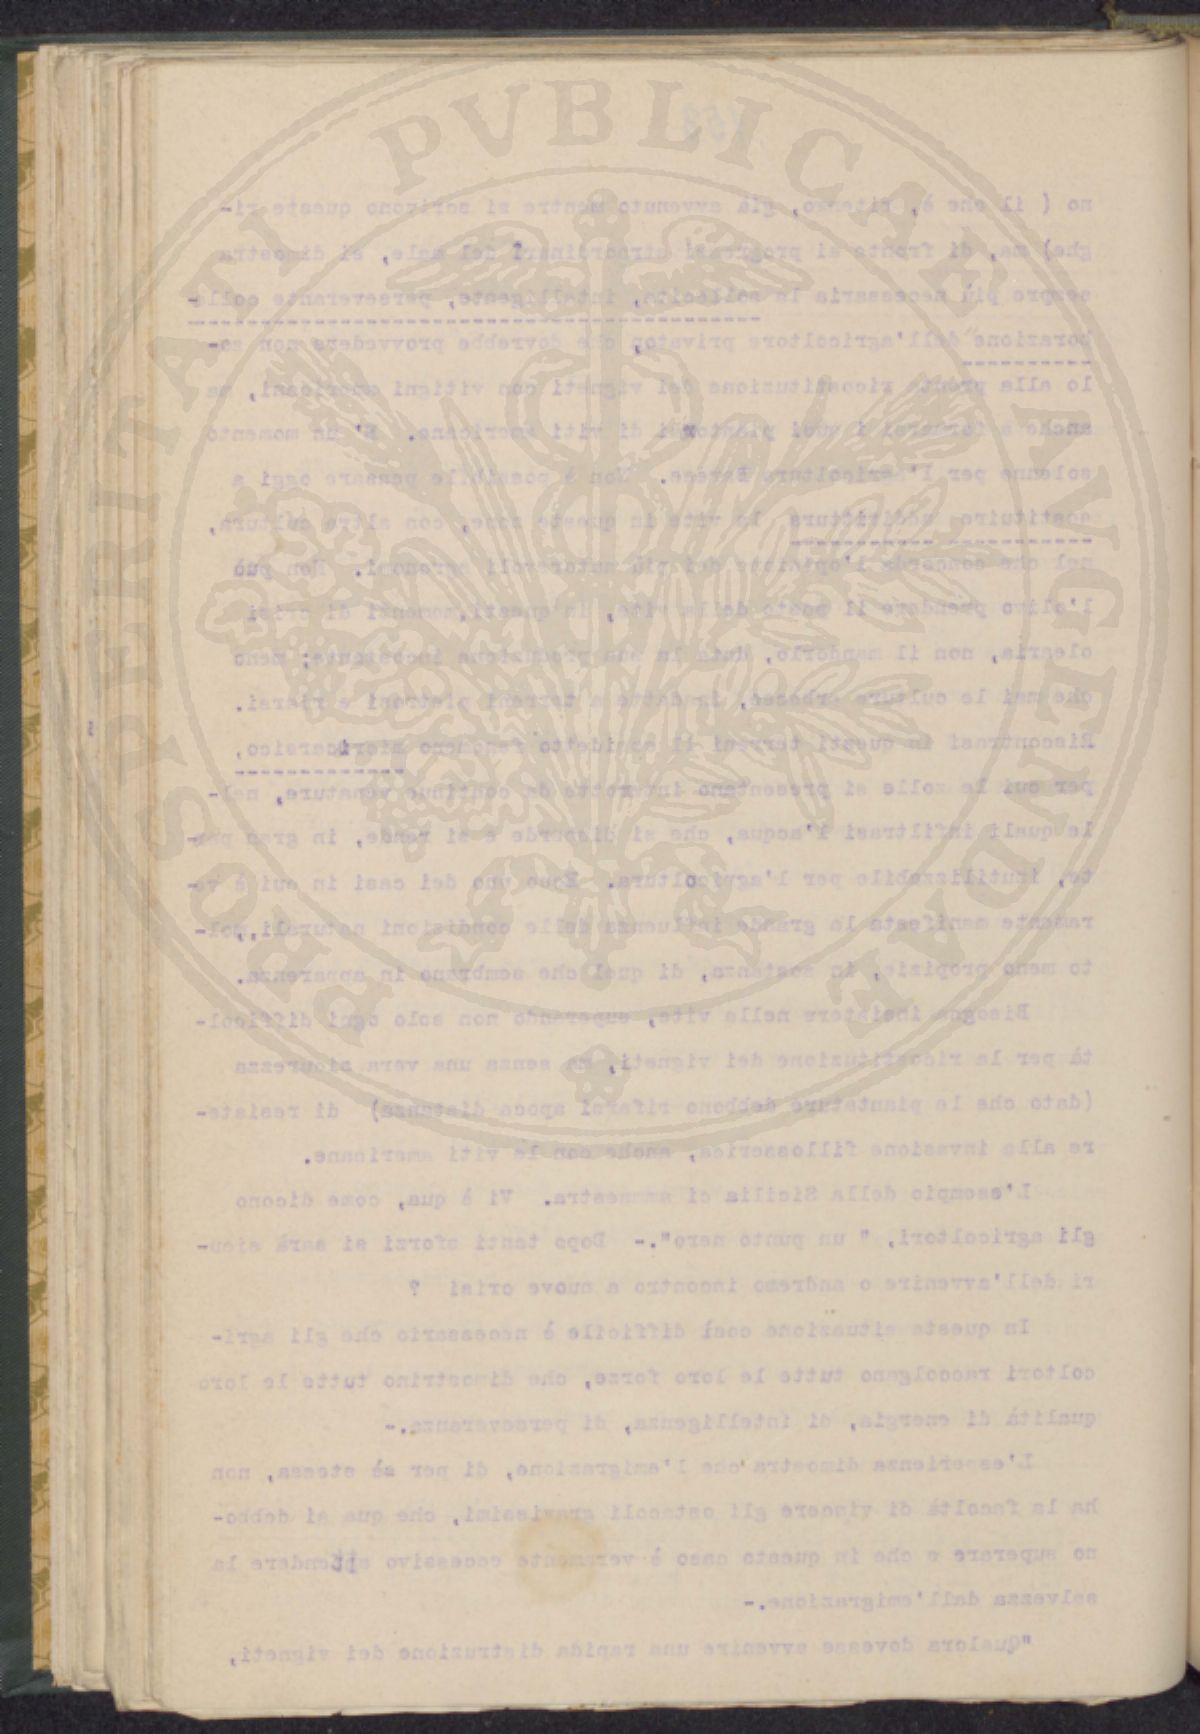 no ( il che è, ritengo, già avvenuto mentre si scrivono queste ri-
ghe) ma, di fronte ai progressi straordinari del male, si dimostra
sempre più necessaria la sollecita, intelligente, perseverante colla-
borazione dell'agricoltore privato, che dovrebbe provvedere non so-
lo alla pronta ricostituzione dei vigneti con vitigni americani, ma
anche a formarsi i suoi piantonai di viti americane. E' un momento
solenne per l'agricoltura Barese. Non è possibile pensare oggi a
sostituire addirittura la vite in queste zone, con altre colture,
nel che concorda l'opinione dei più autorevoli agronomi. Non può
l'olivo prendere il posto della vite, in questi momenti di crisi
olearia, non il mandorlo, data la sua produzione incostante; meno
che mai le culture erbacee, in date a terreni pietrosi e riarsi.
Riscontrasi in questi terreni il cosidetto fenomeno microcarsico,
per cui le zolle si presentano interrotte da continue venature, nel-
le quali infiltrasi l'acqua, che si disperde e si rende, in gran par-
te, inutilizzabile per l'agricoltura. Ecco uno dei casi in cui è ve-
ramente manifesta la grande influenza delle condizioni naturali, mol-
to meno propizie, in sostanza, di quel che sembrano in apparenza.
Bisogna insistere nella vite, superando non solo ogni difficol-
tà per la ricostituzione dei vigneti, ma senza una vera sicurezza
(dato che le piantature debbono rifarsi a poca distanza) di resiste-
re alla invasione fillosserica, anche con le viti americane.
L'esempio della Sicilia ci ammaestra. Vi è qua, come dicono
gli agricoltori, " un punto nero".- Dopo tanti sforzi si sarà sicu-
ri dell'avvenire o andremo incontro a nuove crisi ?
In questa situazione così difficile è necessario che gli agri-
coltori raccolgano tutte le loro forze, che dimostrino tutte le loro
qualità di energia, di intelligenza, di perseveranza.-
L'esperienza dimostra che l'emigrazione, di per sè stessa, non
ha la facoltà di vincere gli ostacoli gravissimi, che qua si debbo-
no superare e che in questo caso è veramente eccessivo attendere la
salvezza dall'emigrazione.-
"Qualora dovesse avvenire una rapida distruzione dei vigneti,
PROSPERITATI PVBLICAE AVGENDAE